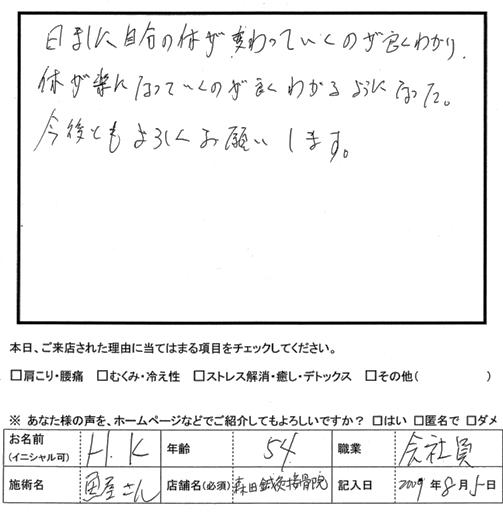 日ましに自分の体が変わっていくのが良くわかり、
体が楽になっていくのが良くわかるようになった。
今後ともよろしくお願いします。
本日、ご来店された理由に当てはまる項目をチェックしてください。
□肩こり・腰痛 □むくみ・冷え性 □ストレス解消・癒し・デトックス □その他( )
※ あなた様の声を、ホームページなどでご紹介してもよろしいですか? □はい □匿名で □ダメ
お名前(イニシャル可) H.K 年齢 54 職業 会社員
施術名 店舗名(必須) 森田鍼灸接骨院 記入日 2009年8月5日